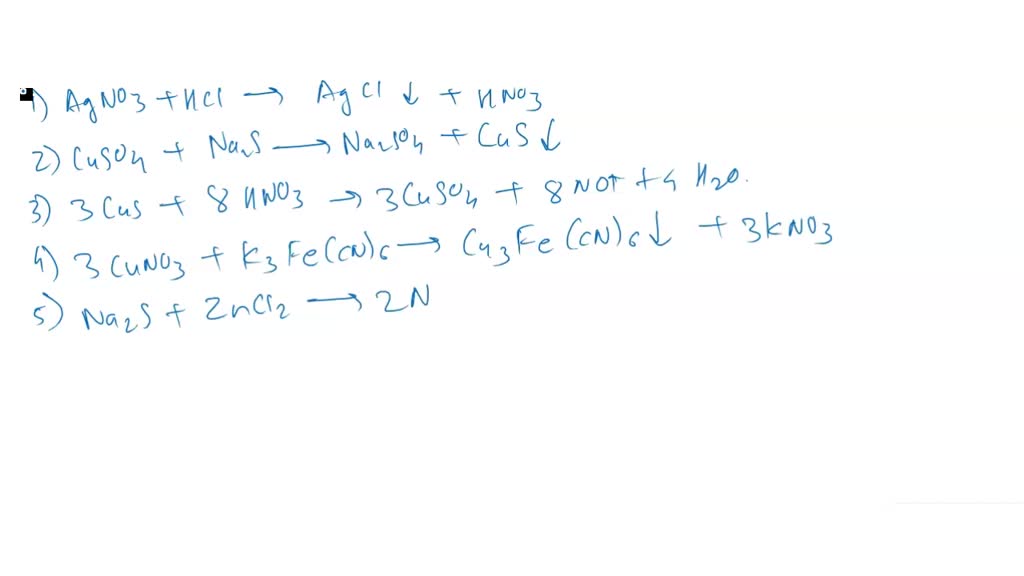 1) AgNO3 + HCl → AgCl ↓ + HNO3
2) CuSO4 + Na2S → Na2SO4 + CuS ↓
3) 3CuS + 8HNO3 → 3CuSO4 + 8NO↑ + 4H2O.
4) 3CuNO3 + K3Fe(CN)6 → Cu3Fe(CN)6 ↓ + 3KNO3
5) Na2S + ZnCl2 → 2N